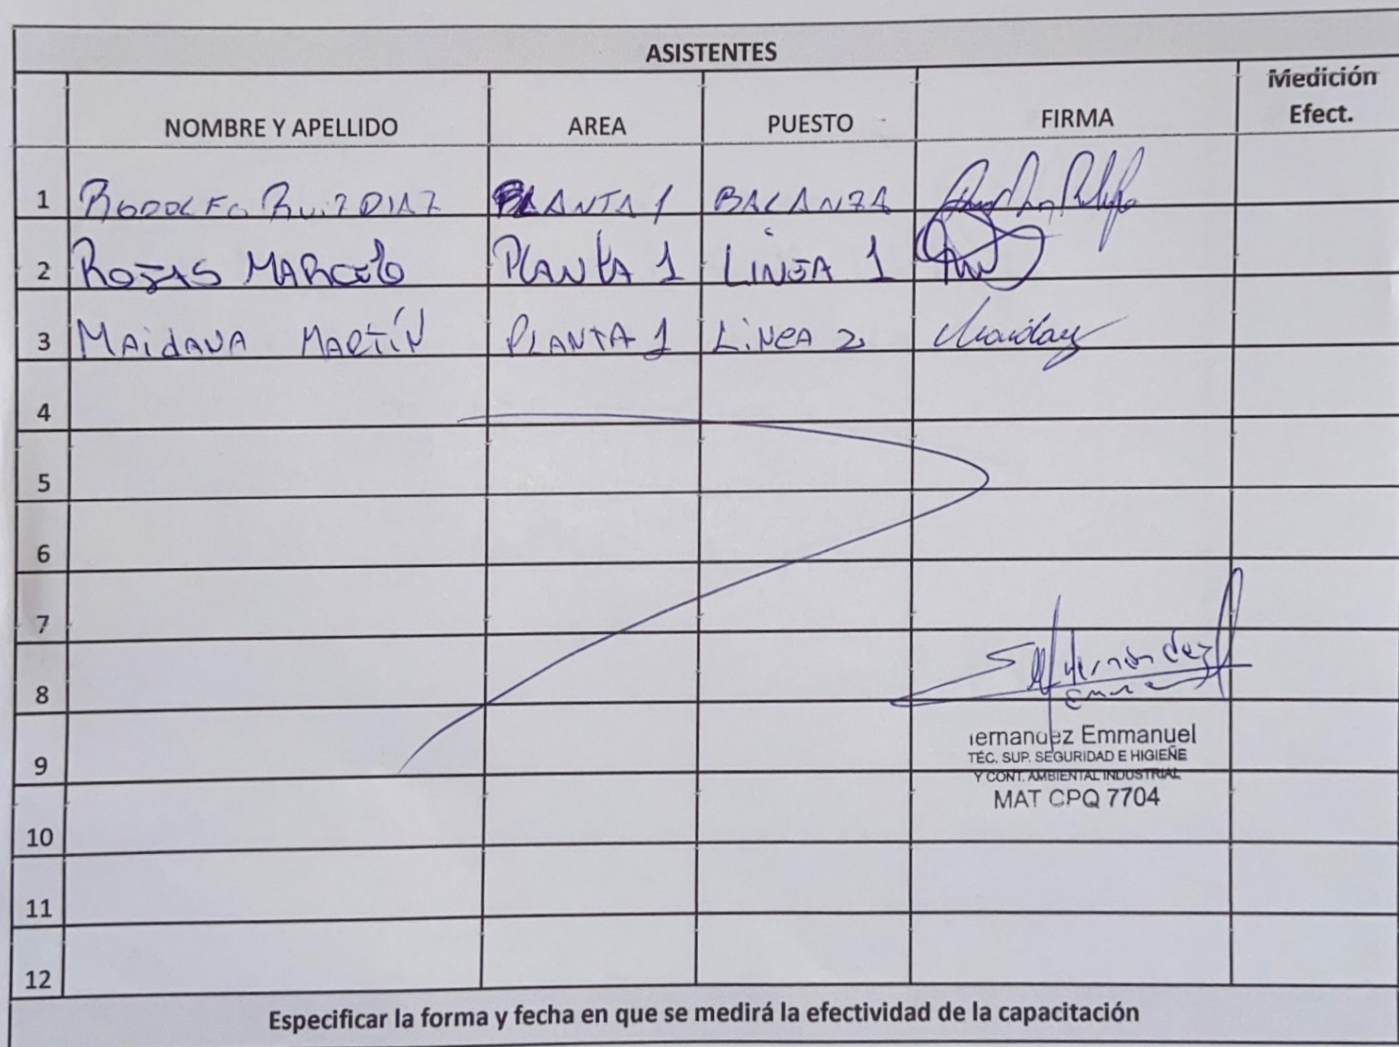 ASISTENTES
NOMBRE Y APELLIDO AREA PUESTO FIRMA Medición Efect.
1 RODOLFO RUIZ DIAZ PLANTA 1 BALANZA
2 ROJAS MARCELO PLANTA 1 LINEA 1
3 MAIDANA MARTÍN PLANTA 1 LINEA 2 Maidana
4
5
6
7
8 Hernández
iernandez Emmanuel
TÉC. SUP. SEGURIDAD E HIGIEÑE
9
Y CONT. AMBIENTAL INDUSTRIAL
MAT CPQ 7704
10
11
12
Especificar la forma y fecha en que se medirá la efectividad de la capacitación